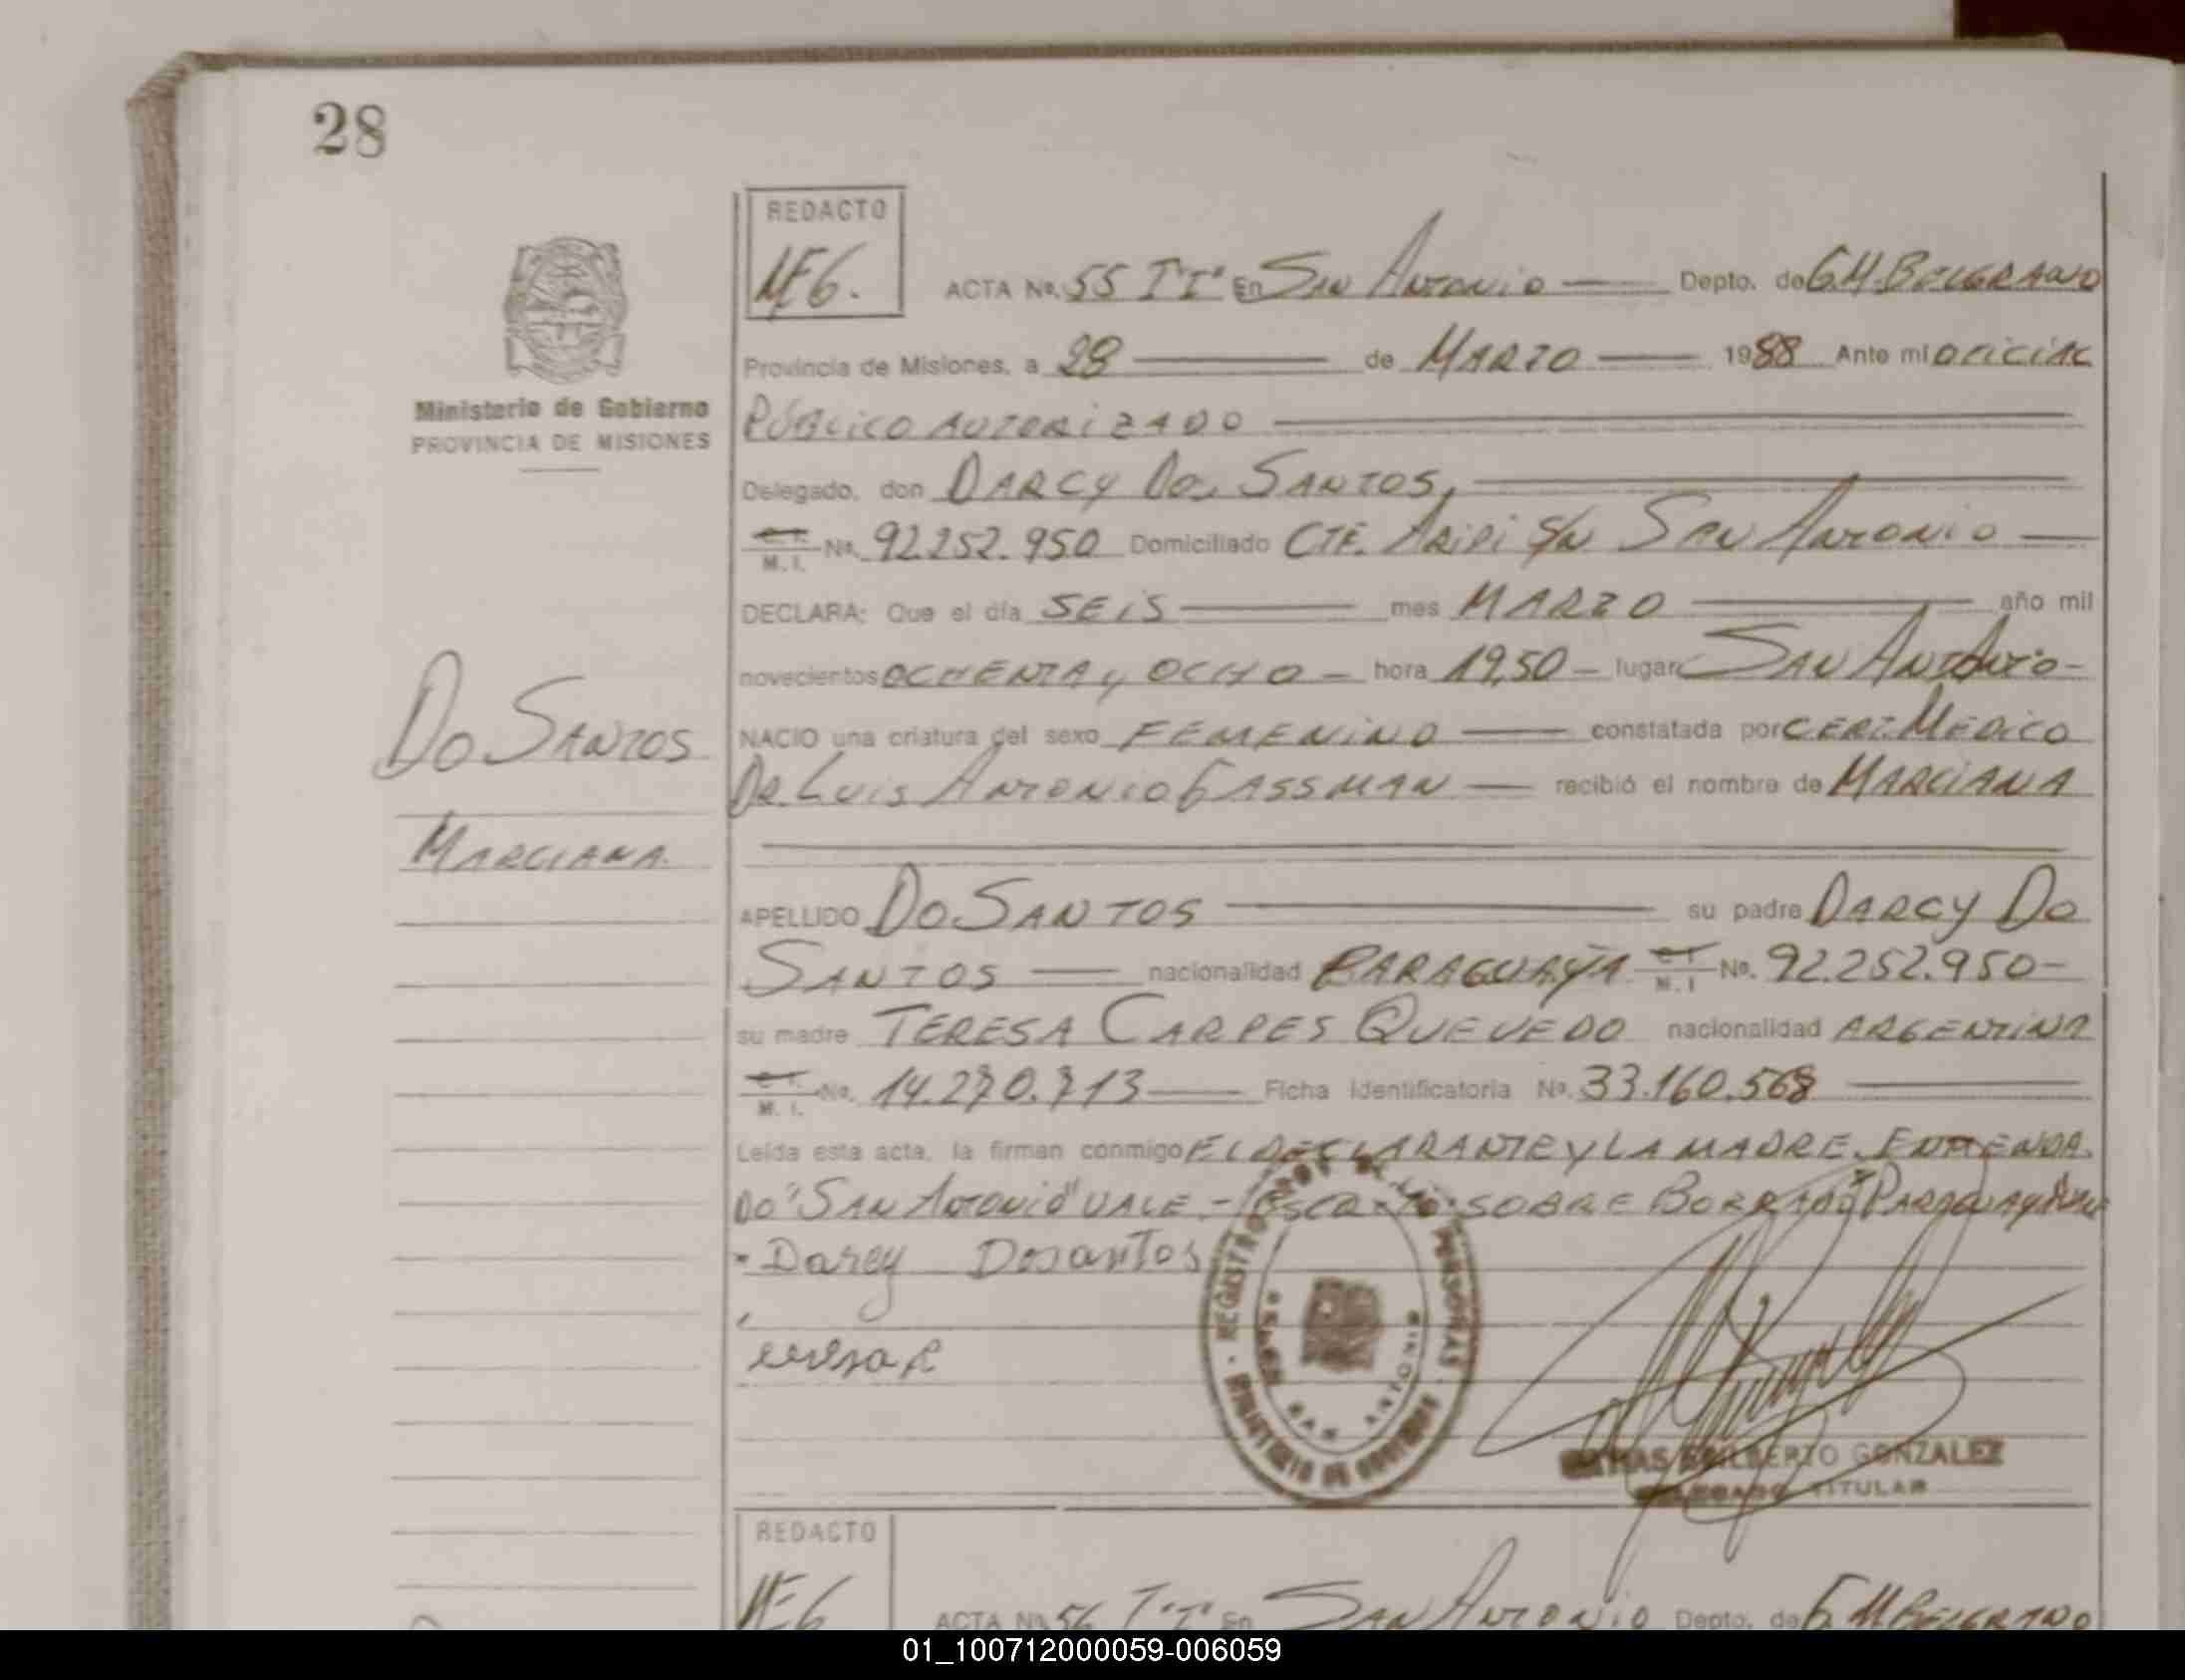 28
REDACTO
ACTA Nº. 55 TºIº En SAN ANTONIO Depto. de G.M. BELGRANO
Provincia de Misiones, a 28 de MARZO 1988 Ante mi OFICIAL
Ministerio de Gobierno
PROVINCIA DE MISIONES
PÚBLICO AUTORIZADO
Delegado, don DARCY DO SANTOS,
M. I. Nº. 92.252.950 Domiciliado CTE. S/N SAN ANTONIO
DECLARA: Que el día SEIS mes MARZO año mil
novecientos OCHENTA y OCHO - hora 19,50 - lugar SAN ANTONIO -
NACIO una criatura del sexo FEMENINO constatada por CERT. MEDICO
DR. LUIS ANTONIO GASSMAN recibió el nombre de MARCIANA
DO SANTOS
MARCIANA.
APELLIDO DO SANTOS su padre DARCY DO
SANTOS nacionalidad PARAGUAYA M. I Nº. 92.252.950-
su madre TERESA CARPES QUEVEDO nacionalidad ARGENTINA
M. I. Nº. 14.270.713 Ficha Identificatoria Nº. 33.160.568
Leída esta acta, la firman conmigo EL DECLARANTE Y LA MADRE. ENMENDA
DO "SAN ANTONIO" VALE.- SOBRE BORRADO
Darcy Dosantos
REGISTRO DE PERSONAS
MINISTERIO DE GOBIERNO
SAN ANTONIO
GONZALEZ
TITULAR
REDACTO
ACTA Nº. 56 TºIº En SAN ANTONIO Depto. de G.M. BELGRANO
01_100712000059-006059